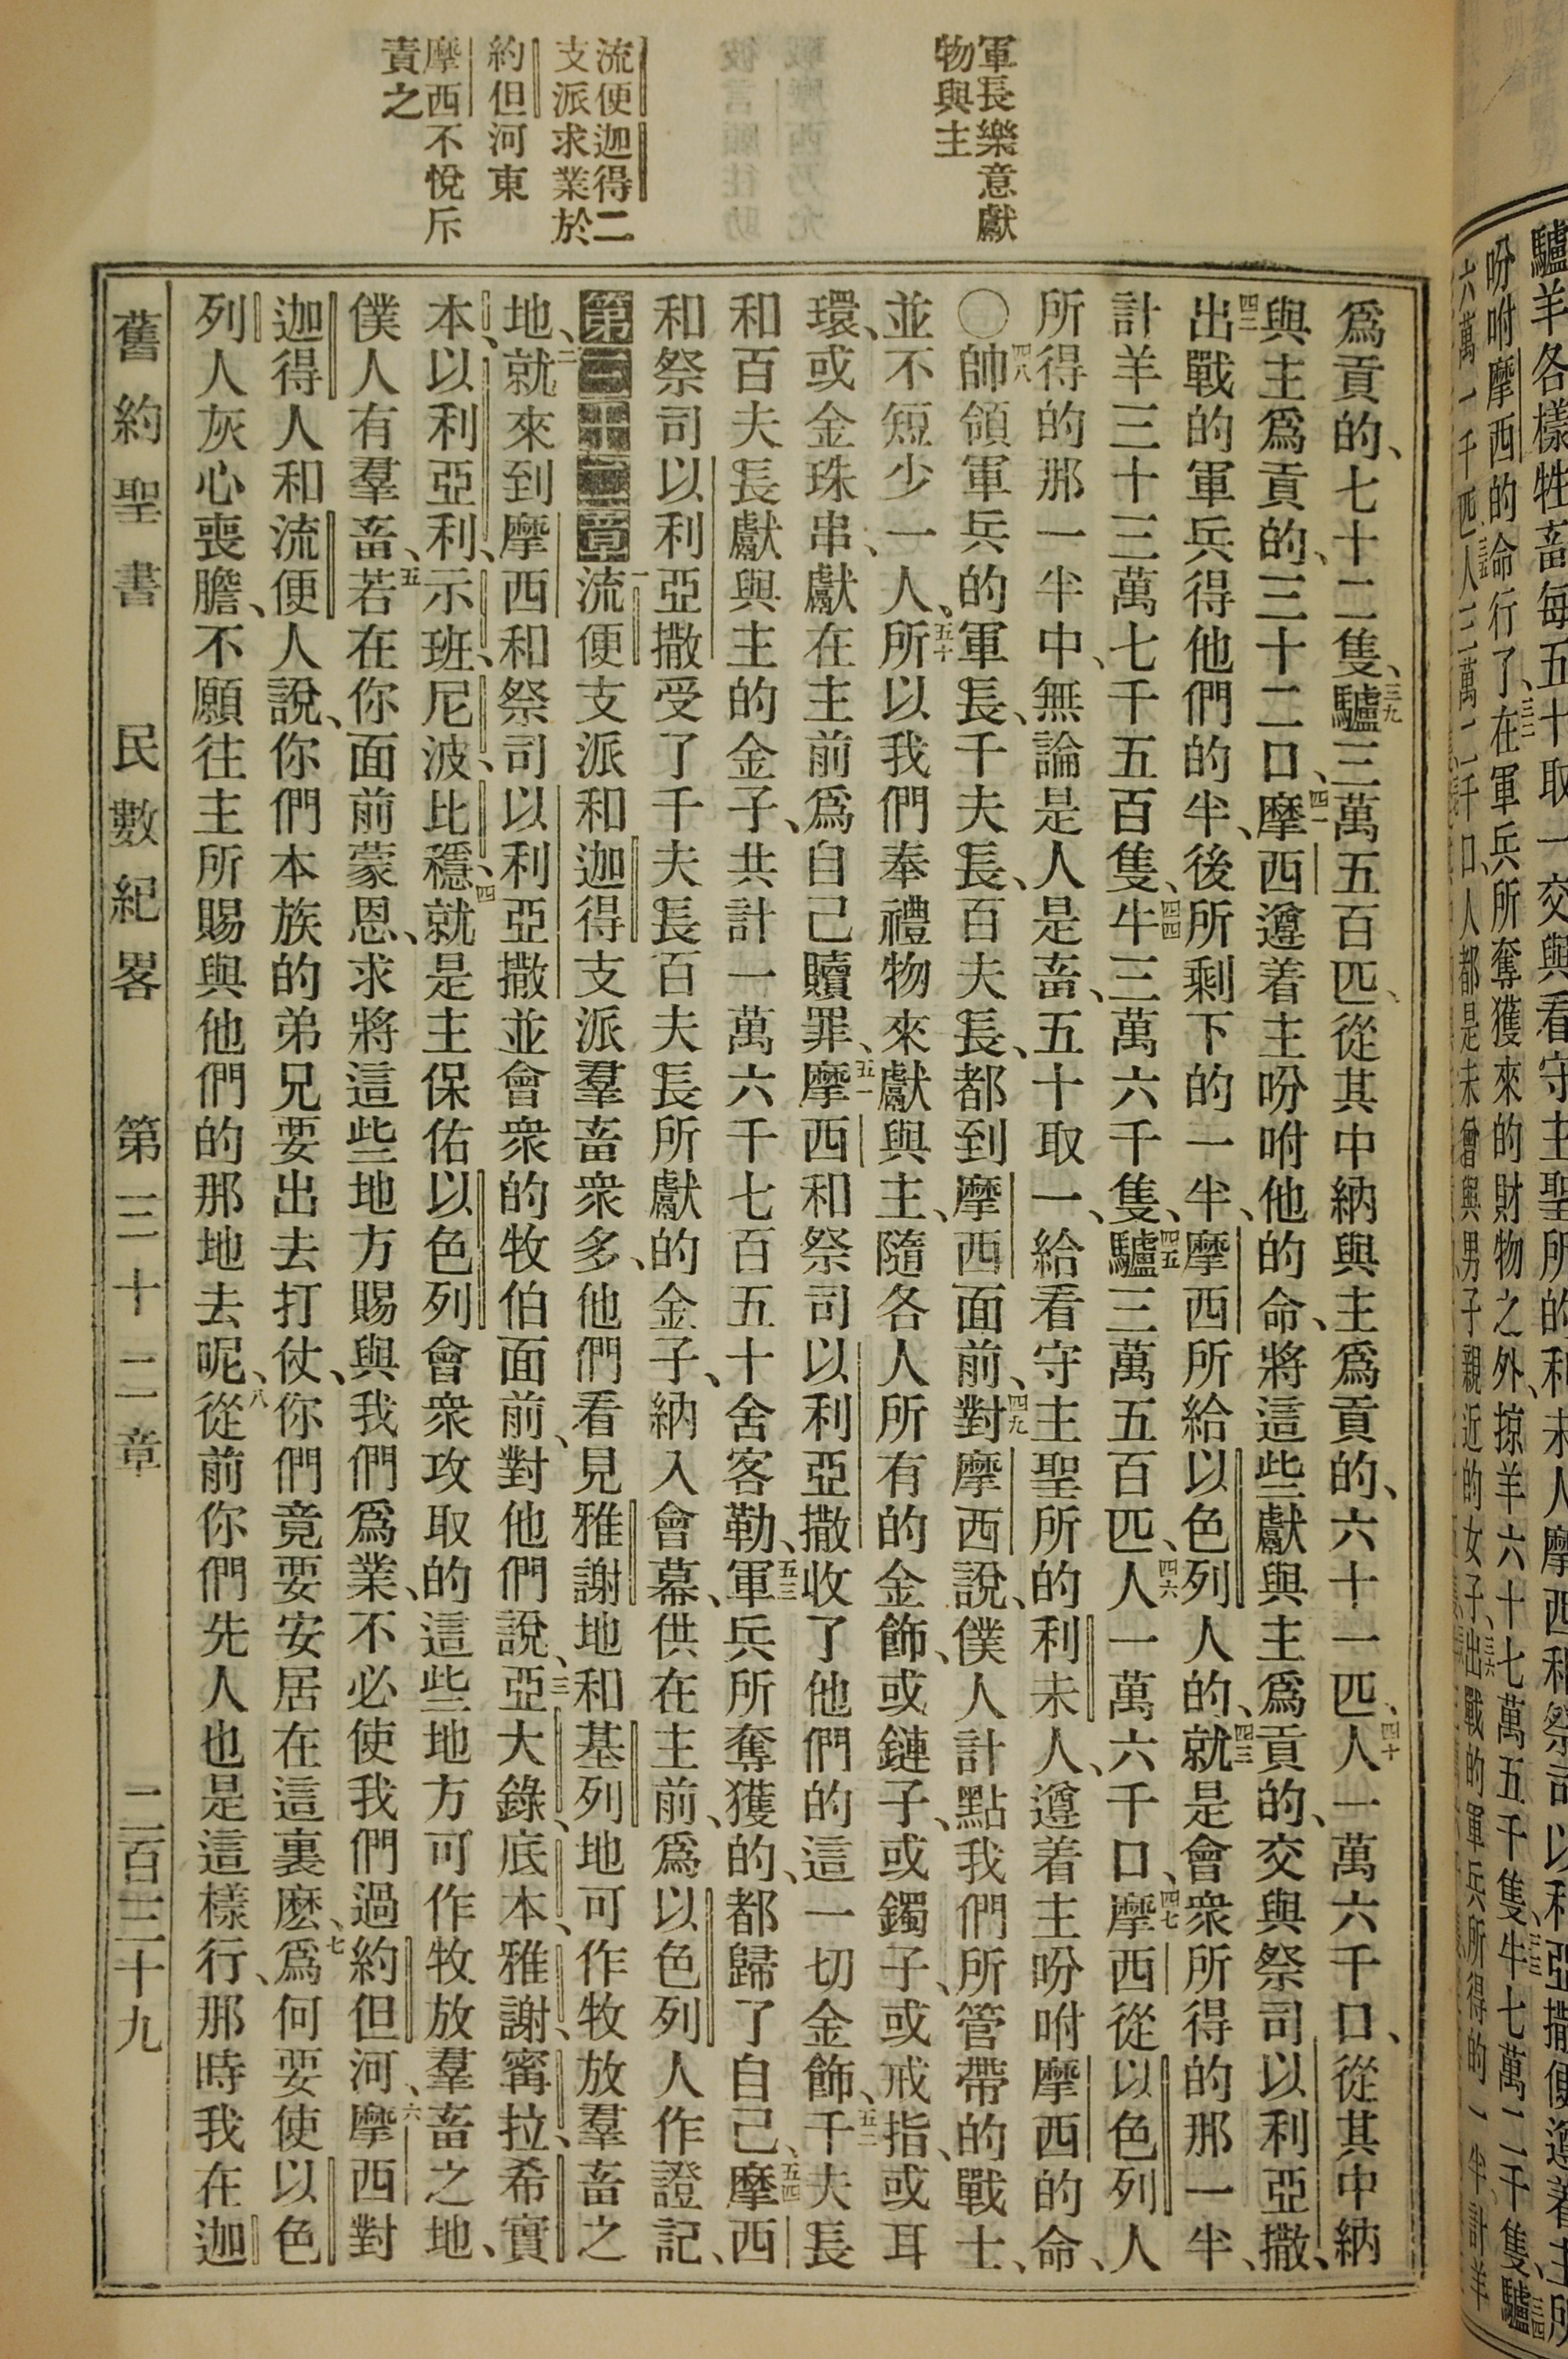 軍長樂意獻
物與主
流便迦得二
支派求業於
約但河東
摩西不悅斥
責之
爲貢的、七十二隻、三九驢三萬五百匹、從其中納與主爲貢的、六十一匹、四十人一萬六千口、從其中納
與主爲貢的、三十二口、四一摩西遵着主吩咐他的命、將這些獻與主爲貢的、交與祭司以利亞撒、
四二出戰的軍兵得他們的半、後所剩下的一半、摩西所給以色列人的、四三就是會衆所得的那一半、
計羊三十三萬七千五百隻、四四牛三萬六千隻、四五驢三萬五百匹、四六人一萬六千口、四七摩西從以色列人
所得的那一半中、無論是人是畜、五十取一、給看守主聖所的利未人、遵着主吩咐摩西的命、
〇四八帥領軍兵的軍長、千夫長、百夫長、都到摩西面前、四九對摩西說、僕人計點我們所管帶的戰士、
並不短少一人、五十所以我們奉禮物來獻與主、隨各人所有的金飾、或鏈子、或鐲子、或戒指、或耳
環、或金珠串、獻在主前爲自己贖罪、五一摩西和祭司以利亞撒收了他們的這一切金飾、五二千夫長
和百夫長獻與主的金子、共計一萬六千七百五十舍客勒、五三軍兵所奪獲的、都歸了自己、五四摩西
和祭司以利亞撒受了千夫長百夫長所獻的金子、納入會幕、供在主前、爲以色列人作證記、
第三十二章一流便支派和迦得支派羣畜衆多、他們看見雅謝地和基列地可作牧放羣畜之
地、二就來到摩西和祭司以利亞撒並會衆的牧伯面前、對他們說、三亞大錄、底本、雅謝、寗拉、希實
本、以利亞利、示班、尼波、比穩、四就是主保佑以色列會衆攻取的這些地方可作牧放羣畜之地、
僕人有羣畜、五若在你面前蒙恩、求將這些地方賜與我們爲業、不必使我們過約但河、六摩西對
迦得人和流便人說、你們本族的弟兄要出去打仗、你們竟要安居在這裏麽、七爲何要使以色
列人灰心喪膽、不願往主所賜與他們的那地去呢、八從前你們先人也是這樣行、那時我在迦
舊約聖書 民數紀畧 第三十二章 二百三十九